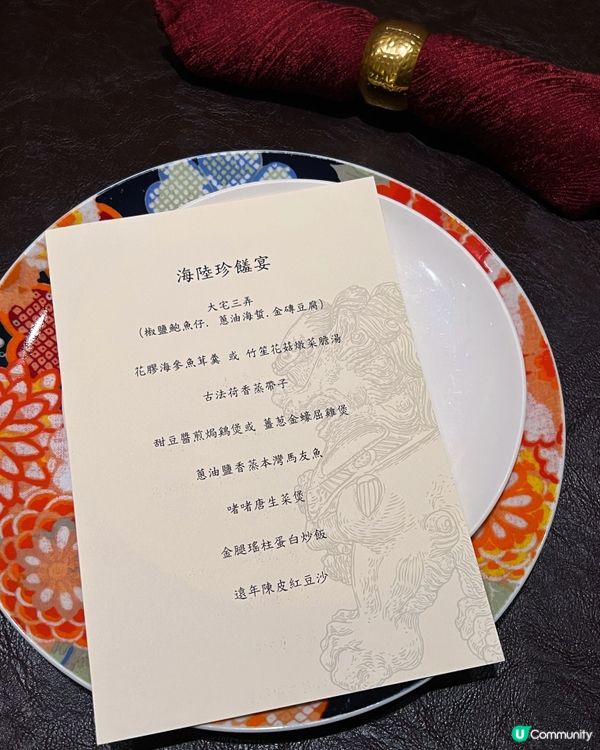 海陸珍饈宴
大宅三弄
(椒鹽鮑魚仔. 蔥油海蜇.金磚豆腐)
花膠海參魚茸羹 或 竹笙花菇燉菜膽湯
古法荷香蒸帶子
甜豆醬煎焗鷄煲或 薑蔥金蠔屈雞煲
蔥油鹽香蒸本灣馬友魚
啫啫唐生菜煲
金腿瑤柱蛋白炒飯
遠年陳皮紅豆沙
U Community